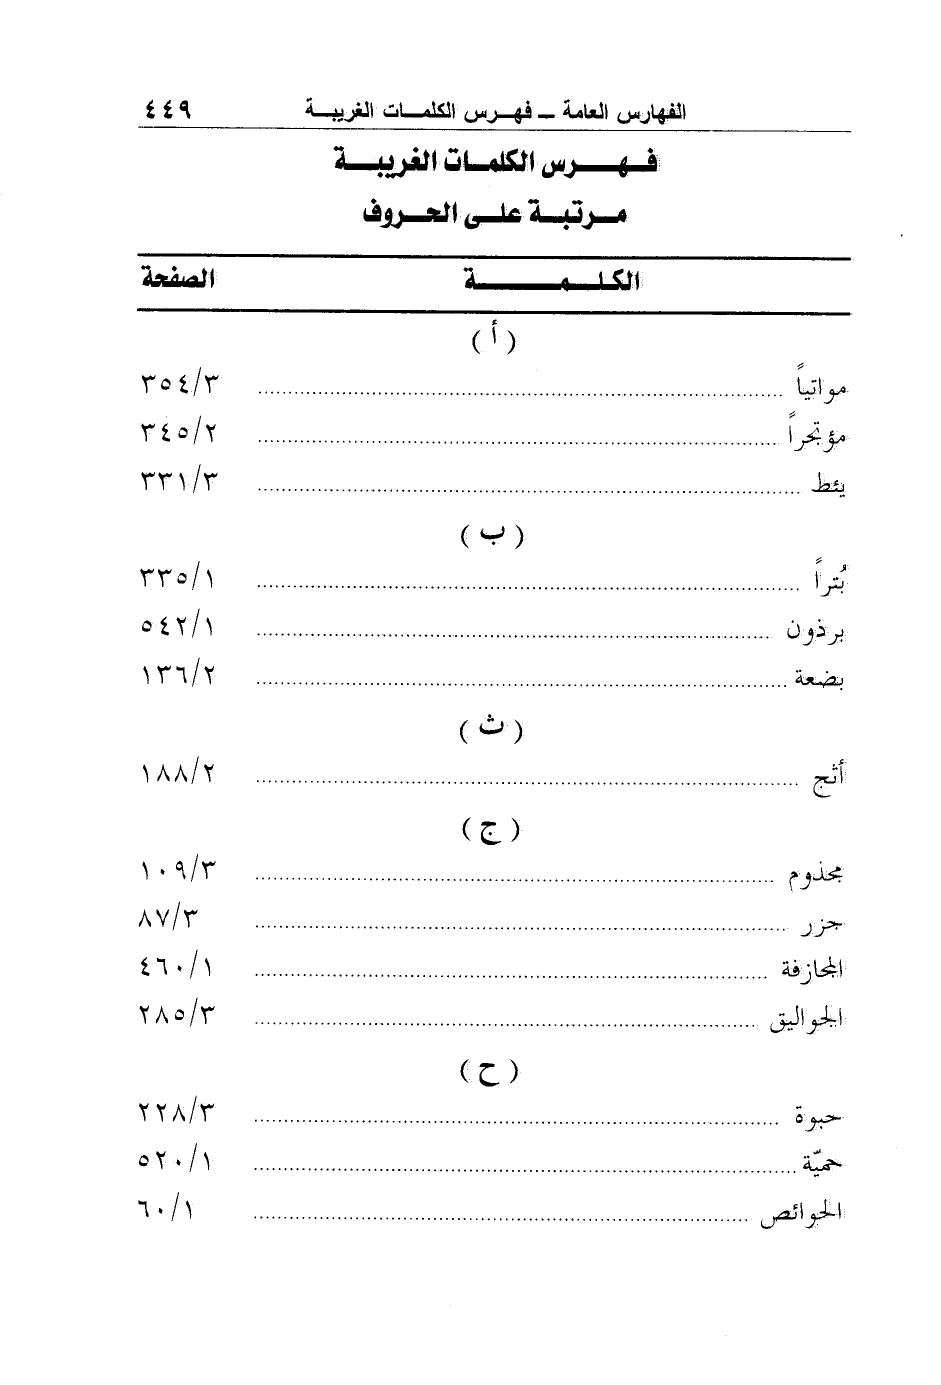 الفهارس العامة ــ فهرس الكلمات الغريبة ٤٤٩
فهرس الكلمات الغريبة
مرتبة على الحروف
الكلمة الصفحة
( أ )
مواتياً ٣٥٤/٣
مؤتجراً ٣٤٥/٢
يئط ٣٣١/٣
( ب )
بُتراً ٣٣٥/١
برذون ٥٤٢/١
بضعة ١٣٦/٢
( ث )
أثج ١٨٨/٢
( ج )
مجذوم ١٠٩/٣
جزر ٨٧/٣
المجازفة ٤٦٠/١
الجواليق ٢٨٥/٣
( ح )
حبوة ٢٢٨/٣
حميّة ٥٢٠/١
الحوائص ٦٠/١